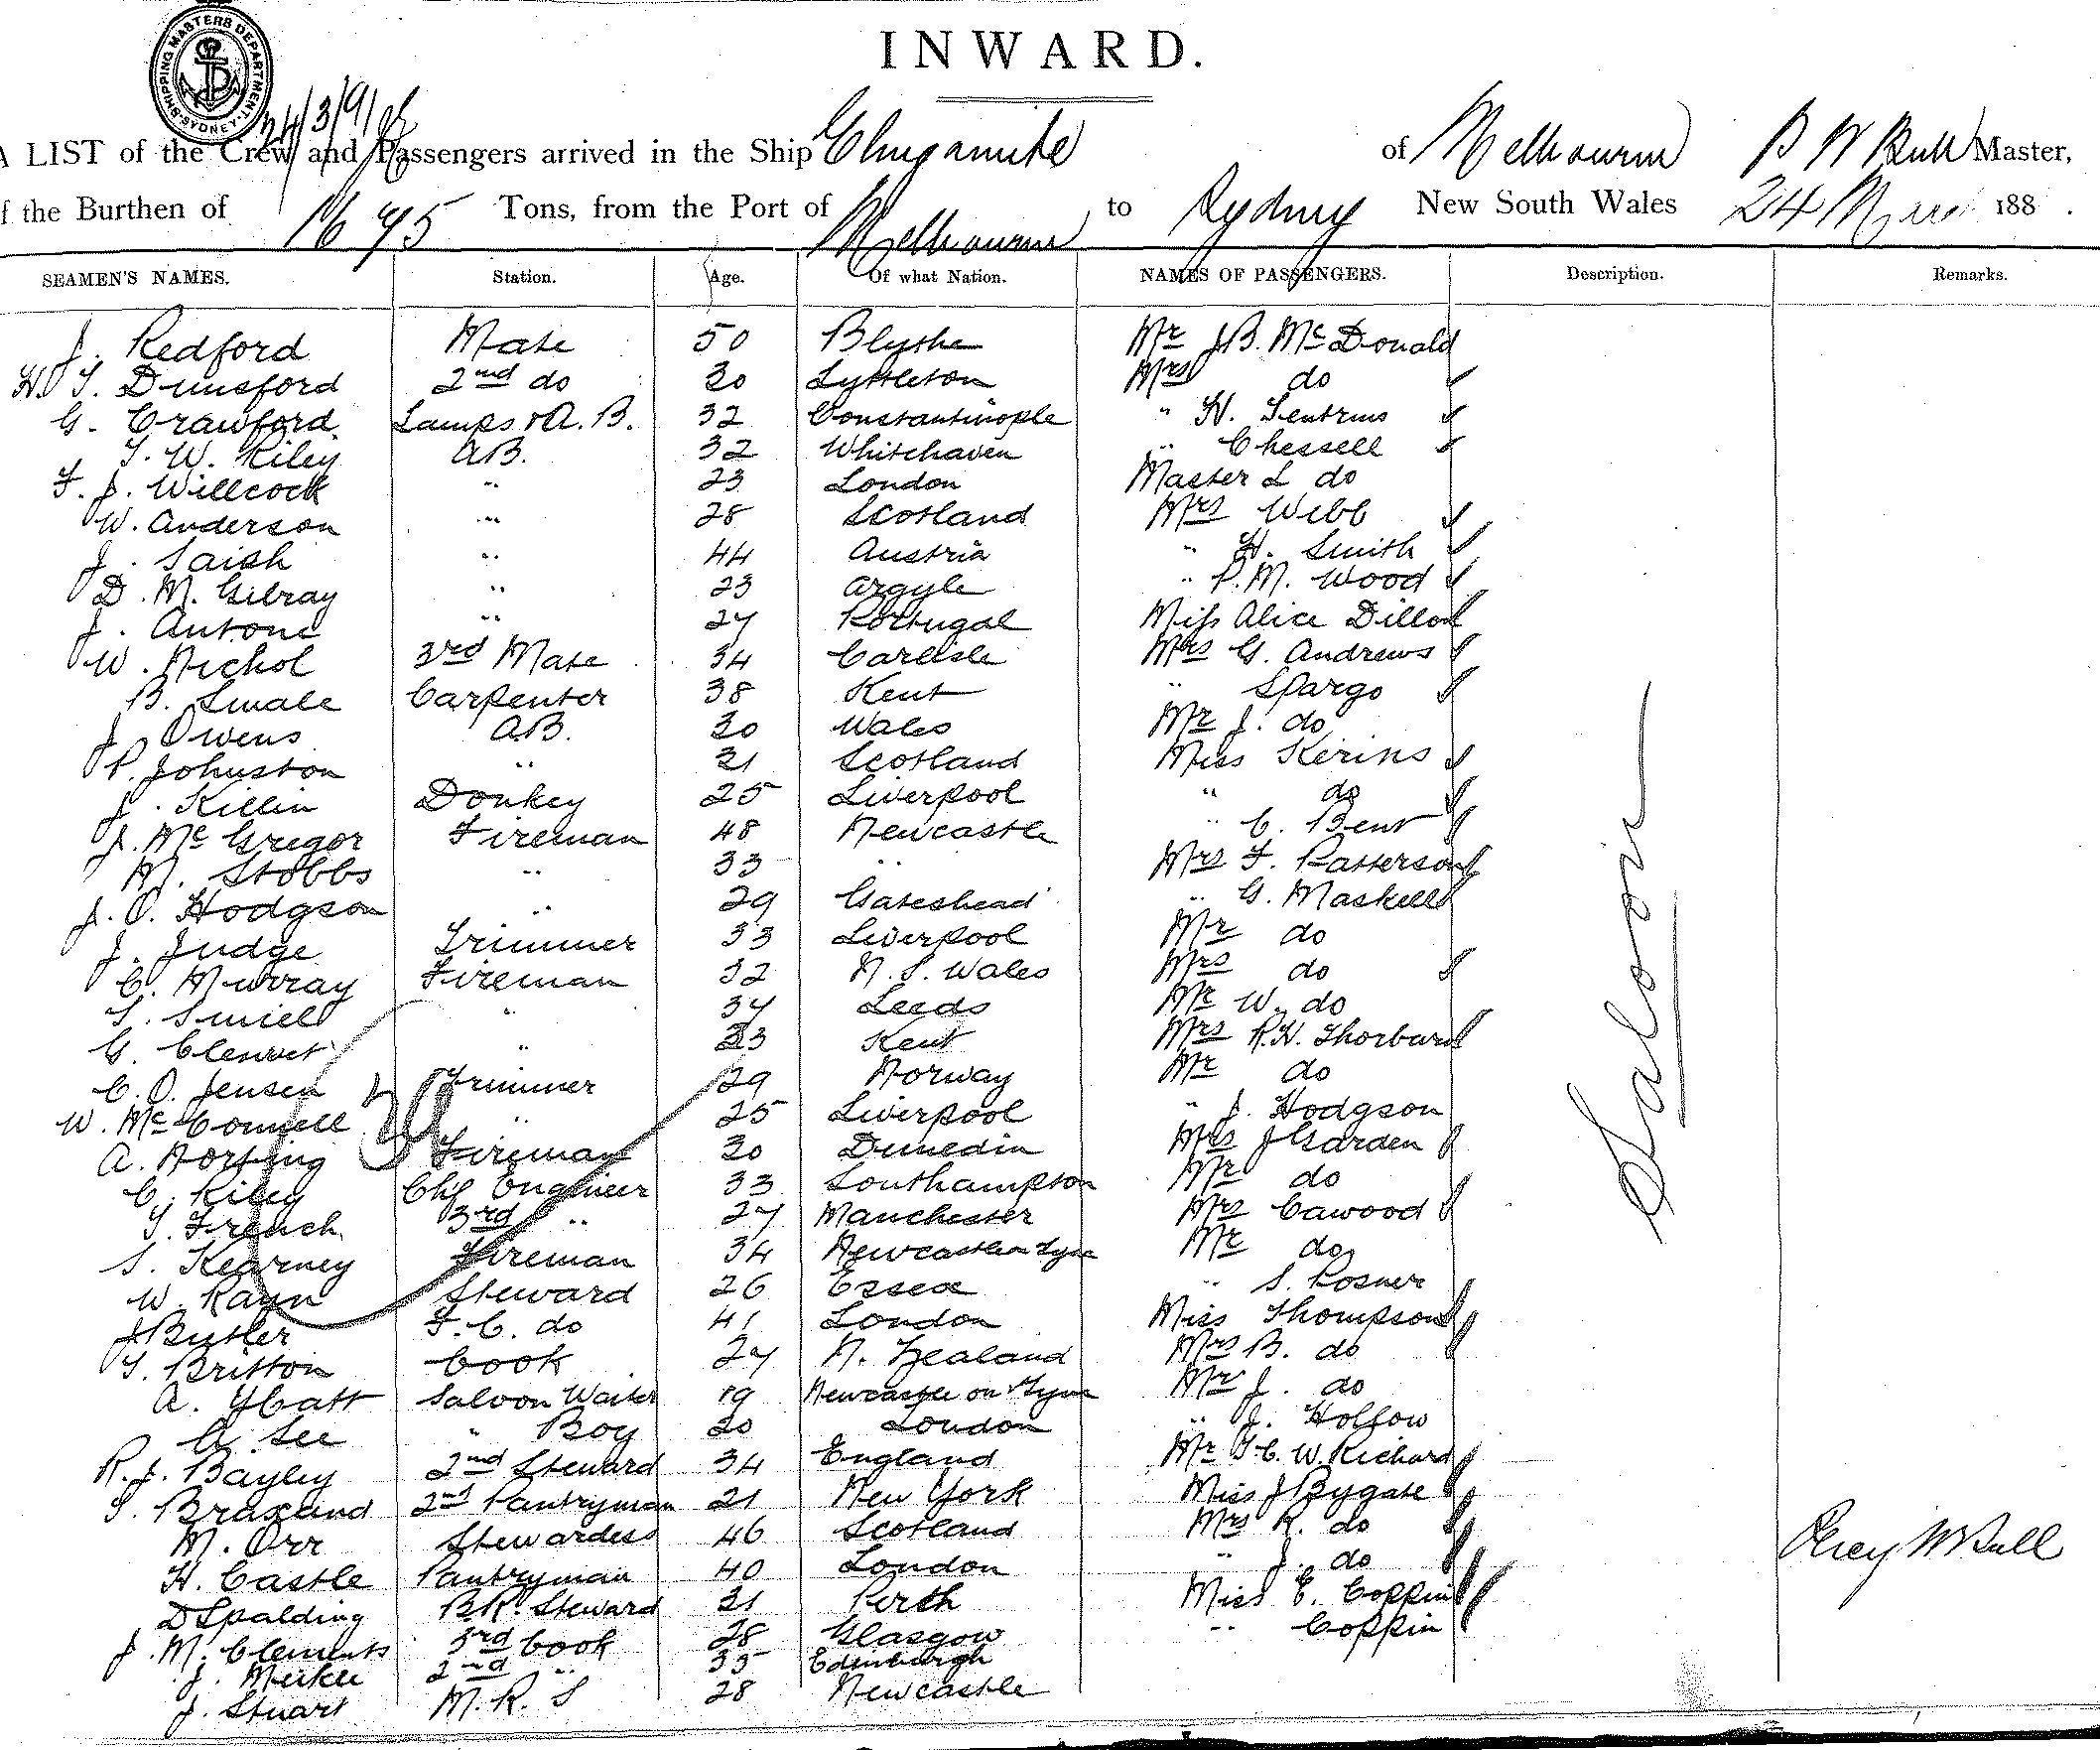 INWARD.
SHIPPING MASTERS DEPARTMENT SYDNEY
24/3/91
A LIST of the Crew and Passengers arrived in the Ship Elingamite of Melbourne P W Bull Master,
f the Burthen of 1675 Tons, from the Port of Melbourne, to Sydney New South Wales 24 March 188 .
SEAMEN'S NAMES. Station. Age. Of what Nation. NAMES OF PASSENGERS. Description. Remarks.
J. Redford Mate 50 Blythe Mr J B. McDonald
H. T. Dunsford 2nd do 30 Lyttleton Mrs do
G. Crawford Lamps & A. B. 32 Constantinople " H.
T. W. Riley A B. 32 Whitehaven " Chessell
F. J. Willcock " 23 London Master L do
W. Anderson " 28 Scotland Mrs Webb
J. Saich " 44 Austria " H. Smith
D. M. Gilray " 23 Argyle " P. M. Wood
J. Antone " 27 Portugal Miss Alice Dillon
W. Nichol 3rd Mate 34 Carlisle Mrs G. Andrews
B. Smale Carpenter 38 Kent " Spargo
J. Owens A.B. 30 Wales Mr J. do
P. Johnston " 31 Scotland Miss Kerins
J. Killin Donkey 25 Liverpool " do
J. McGregor Fireman 48 Newcastle " C. Bent
M. Stobbs " 33 " Mrs F. Patterson
J. O. Hodgson " 29 Gateshead " G. Maskell
J. Judge Trimmer 33 Liverpool Mr do
C. Murray Fireman 32 N. S. Wales Mrs do
T. " 34 Leeds Mr W. do
G. " 23 Kent Mrs R. H. Thorburn
C. O. Jensen Trimmer 29 Norway Mr do
W. McConnell " 25 Liverpool " J. Hodgson
A. Fireman 30 Dunedin Mrs J Garden
C. Riley Chf Engineer 33 Southampton Mr do
T. French 3rd " 27 Manchester Mrs Cawood
S. Kearney Fireman 34 Newcastle on Tyne Mr do
W. Steward 26 Essex " S. Posner
J Butler F. C. do 41 London Miss Thompson
T. Britton Cook 27 N. Zealand Mrs B. do
A. Saloon Waiter 19 Newcastle on Tyne Mr J. do
A. See " Boy 20 London " J. Hollow
R. J. Bayley 2nd Steward 34 England Mr T. C. W. Richard
S. 2nd Pantryman 21 New York Miss J Bygate
M. Orr Stewardess 46 Scotland Mrs R. do
H. Castle Pantryman 40 London " J. do
D Spalding B.R. Steward 31 Perth Miss E. Coppin
J. M. Clements 3rd Cook 28 Glasgow " Coppin
J. Meikle 2nd " 35 Edinburgh
J. Stuart M. R. S 28 Newcastle
Saloon
Percy W Bull